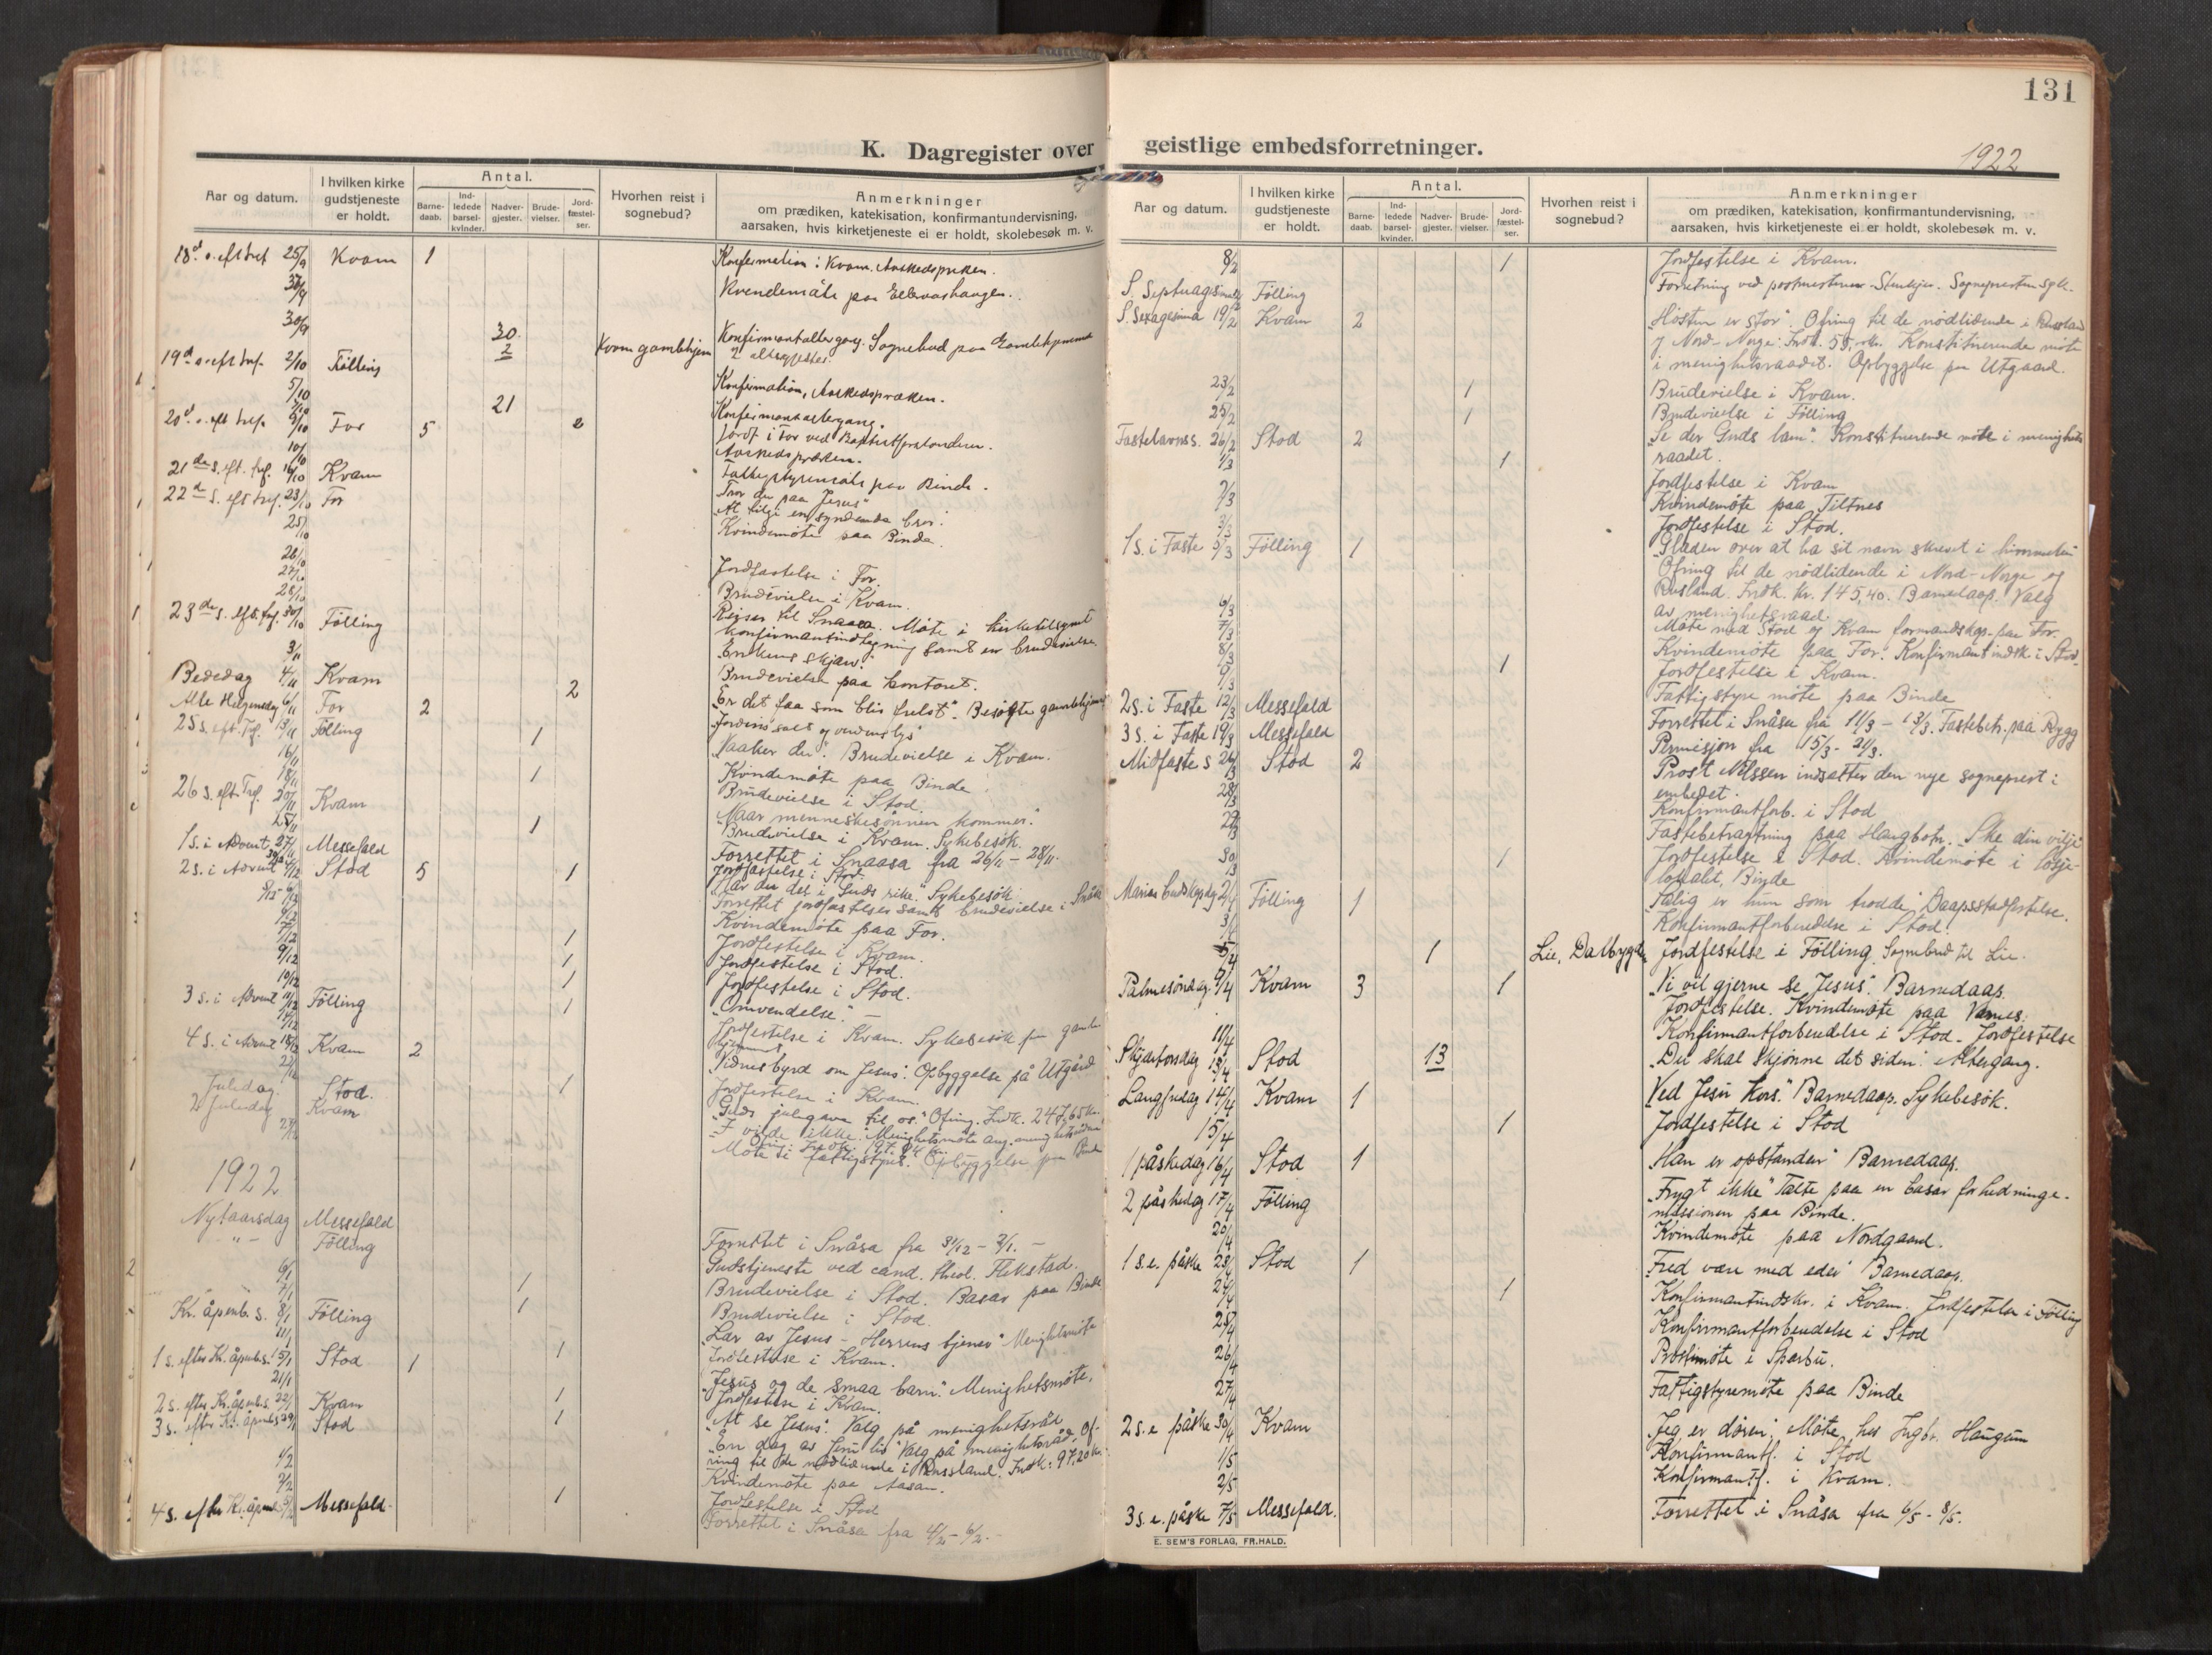 131
K. Dagregister over geistlige embedsforretninger.
1922
Aar og datum.
I hvilken kirke gudstjeneste er holdt.
Antal.
Barnedaab.
Indledede barselkvinder.
Nadvergjester.
Brudevielser.
Jordfæstelser.
Hvorhen reist i sognebud?
Anmerkninger
om prædiken, katekisation, konfirmantundervisning,
aarsaken, hvis kirketjeneste ei er holdt, skolebesøk m. v.
18d s. eft tref 25/9 Kvam 1 Konfirmation i Kvam. Avskedspreken.
30/9 30 Kvam gamlehjem Konfirmantaltergang. Sognebud paa Gamlehjemmet
2 2 altergjester.
19d s. eft tref. 2/10 Følling Konfirmation, Avskedspræken.
5/10 21 Konfirmantaltergang.
20d s. eft tref. 9/10 For 5 Avskedspræken.
21de s. eft. tref. 16/10 Kvam Tror du paa Jesus"
22d s. eft tref. 23/10 For At tilgi en syndende bror.
25/10 Kvindemøte paa Binde.
26/10 Jordfæstelse i For.
27/10 Brudevielse i Kvam.
28/10 Reiser til Snaasa. Møte i kirketilsynet
konfirmantindtegning samt en brudevielse
23de s. eft. tref. 30/10 Følling
3/11 Brudevielse paa kontoret.
Bededag 4/11 Kvam 2 Er det faa som blir frelst". Besøkte gamlehjemmet
Alle Helgensdag 6/11 For 2 Jordens salt og verdens lys"
25 s. eft. Tref. 13/11 Følling 1 Vaaker da". Brudevielse i Kvam.
16/11 Kvindemøte paa Binde
18/11 1 Brudevielse i Stod.
26 s. eft. Tref. 20/11 Kvam "Naar menneskesønnen kommer."
25/11 1 Brudevielse i Kvam. Sykebesøk.
1 s. i Advent 27/11 Messefald Forrettet i Snaasa fra 26/11 - 28/11.
Jordfæstelse i Stod
2 s. i Advent 4/12 Stod 5 1 "Har du del i Guds rike." Sykebesøk
Forrettet jordfæstelser samt brudevielse i Snåsa
Kvindemøte paa For.
7/12 1 Jordfestelse i Kvam.
9/12 1 Jordfestelse i Stod.
10/12 1 Jordfestelse i Stod.
3 s. i Advent 11/12 Følling 1 "Omvendelse." -
Jordfestelse i Kvam. Sykebesøk paa gamlehjemmet
4 s. i Advent 18/12 Kvam 2 Vidnesbyrd om Jesus". Opbyggelse på Utgård
1 Jordfestelse i Kvam.
Juledag Stod. "Guds julegave til os." Ofring. Indk. 247,65 kr.
2 Juledag Kvam "I vilde ikke. Menighetsmøte ang. menighetsrådene
Møte i fattigstyret. Opbyggelse paa Binde
1922
Nytaarsdag Messefald Forrettet i Snåsa fra 31/12 - 2/1. -
- " - Følling Gudstjeneste ved cand. theol. Flekstad.
6/1 1 Brudevielse i Stod. Basar paa Binde
7/1 1 Brudevielse i Stod.
Kr. åpenb. s. 8/1 Følling Lær av Jesus - Herrens tjener" Menighetsmøte
11/1 1 Jordfestelse i Kvam.
1 s. efter Kr. åpenb.s. 15/1 Stod 1 "Jesus og de smaa barn." Menighetsmøte.
21/1 1 Jordfestelse i Kvam.
2 s. efter Kr. åpenb.s. 22/1 Kvam "At se Jesus". Valg på menighetsråd
3 s. efter Kr. åpenb.s. 29/1 Stod "En dag av Jesu liv" Valg på menighetsråd. Of-
ring til de nødlidende i Russland. Indk. 97,20 kr.
1/2 Kvindemøte paa Aasan.
2/2 1 Jordfestelse i Stod
4 s. efter Kr. åpenb. 5/2 Messefald- Forrettet i Snåsa fra 4/2 - 6/2. -
8/2 1 Jordfestelse i Kvam.
S. Septuagesima Følling Forretning ved postmesteren Steinkjer. Sognepresten syk.
S. Sexagesima 19/2 Kvam 2 "Høsten er stor". Ofring til de nødlidende i Russland
i Nord-Norge: Indk. 55, kr. Konstituerende møte
i menighetsraadet. Opbyggelse paa Utgaard.
23/2 1 Brudevielse i Kvam.
25/2 1 Brudevielse i Følling
Fastelavns s. 26/2 Stod 2 "Se der Guds lam". Konstituerende møte i menighets
raadet.
1/3 1 Jordfestelse i Kvam
2/3 Kvindemøte paa Tiltnes
3/3 Jordfestelse i Stod.
1 s. i Faste 5/3 Følling 1 "Glæden over at ha sit navn skrevet i himmelen"
Ofring til de nødlidende i Nord-Norge og
Rusland. Indk. kr. 145,40. Barnedaap. Valg
av menighetsraad.
6/3 Møte med Stod og Kvam formandskap paa For.
7/3 Kvindemøte paa For. Konfirmant indsk. i Stod.
8/3 1 Jordfestelse i Kvam.
9/3 Fattigstyre møte paa Binde
2 s. i Faste 12/3 Messefald Forrettet i Snåsa frå 11/3 - 13/3. Fastebetr. paa Rygg
3 s. i Faste 19/3 Messefald Permisjon fra 15/3 - 21/3.
Midfaste s 26/3 Stod 2 Prost Nilssen indsatte den nye sogneprest i
embedet.
28/3 Konfirmantforb. i Stod
29/3 Fastebetragtning paa Haugbotn. "Ske din vilje
30/3 1 Jordfestelse i Stod. Kvindemøte i losje-
lokalet, Binde
Mariæ budskapsdag 2/4 Følling 1 "Salig er hun som trodde" Daapsstadfestelse.
3/4 Konfirmantforberedelse i Stod.
5/4 1 Lie, Dalbygden Jordfestelse i Følling. Sognebud til Lie.
Palmesøndag 9/4 Kvam 3 1 "Vi vil gjerne se Jesus". Barnedaap.
Jordfestelse. Kvindemøte paa Vamnes.
11/4 Konfirmantforberedelse i Stod. Jordfestelse
Skjærtorsdag 13/4 Stod 13 "Du skal skjønne det siden". Altergang.
Langfredag 14/4 Kvam 1 Ved Jesu kors." Barnedaap. Sykebesøk.
15/4 1 Jordfestelse i Stod
1 påskedag 16/4 Stod 1 "Han er opstanden" Barnedaap.
2 påskedag 17/4 Følling "Frygt ikke" Talte paa en basar for hedninge-
missionen paa Binde.
20/4 Kvindemøte paa Nordgaard.
1 s. e. påske 23/4 Stod 1 "Fred være med eder" Barnedaap.
24/4 1 Konfirmantindskr. i Kvam. Jordfestelse i Følling
25/4 Konfirmantforberedelse i Stod
26/4 Prostimøte i Sparbu.
27/4 Fattigstyremøte paa Binde
2 s. e. påske 30/4 Kvam "Jeg er døren". Møte hos Ingbr. Haugum
1/5 Konfirmantf. i Stod
2/5 Konfirmantf. i Kvam.
3 s. e. påske 7/5 Messefald. Forrettet i Snåsa fra 6/5 - 8/5.
E. SEM'S FORLAG, FR.HALD.